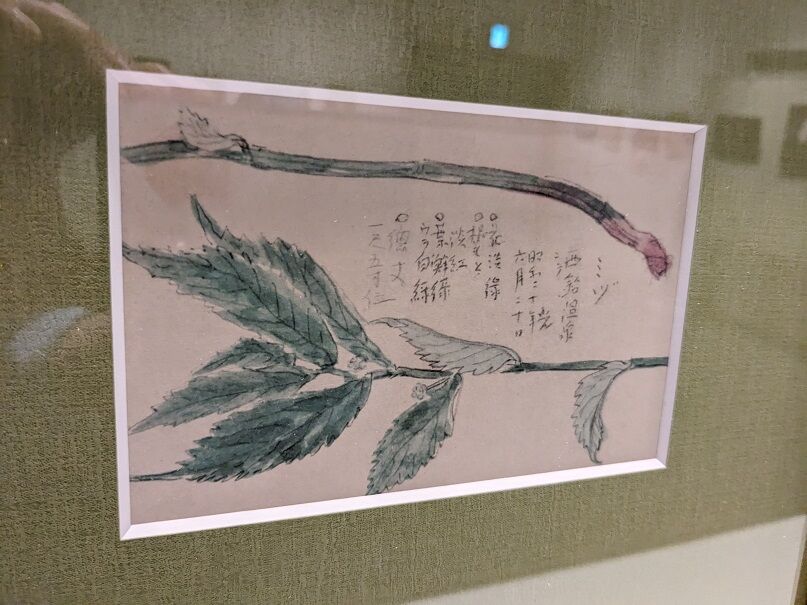 ミヅ
温泉
昭和二十年
六月二十日
○花淡緑
○根もと
淡紅
○葉鮮緑
ウラ白緑
○總丈
一尺五寸位